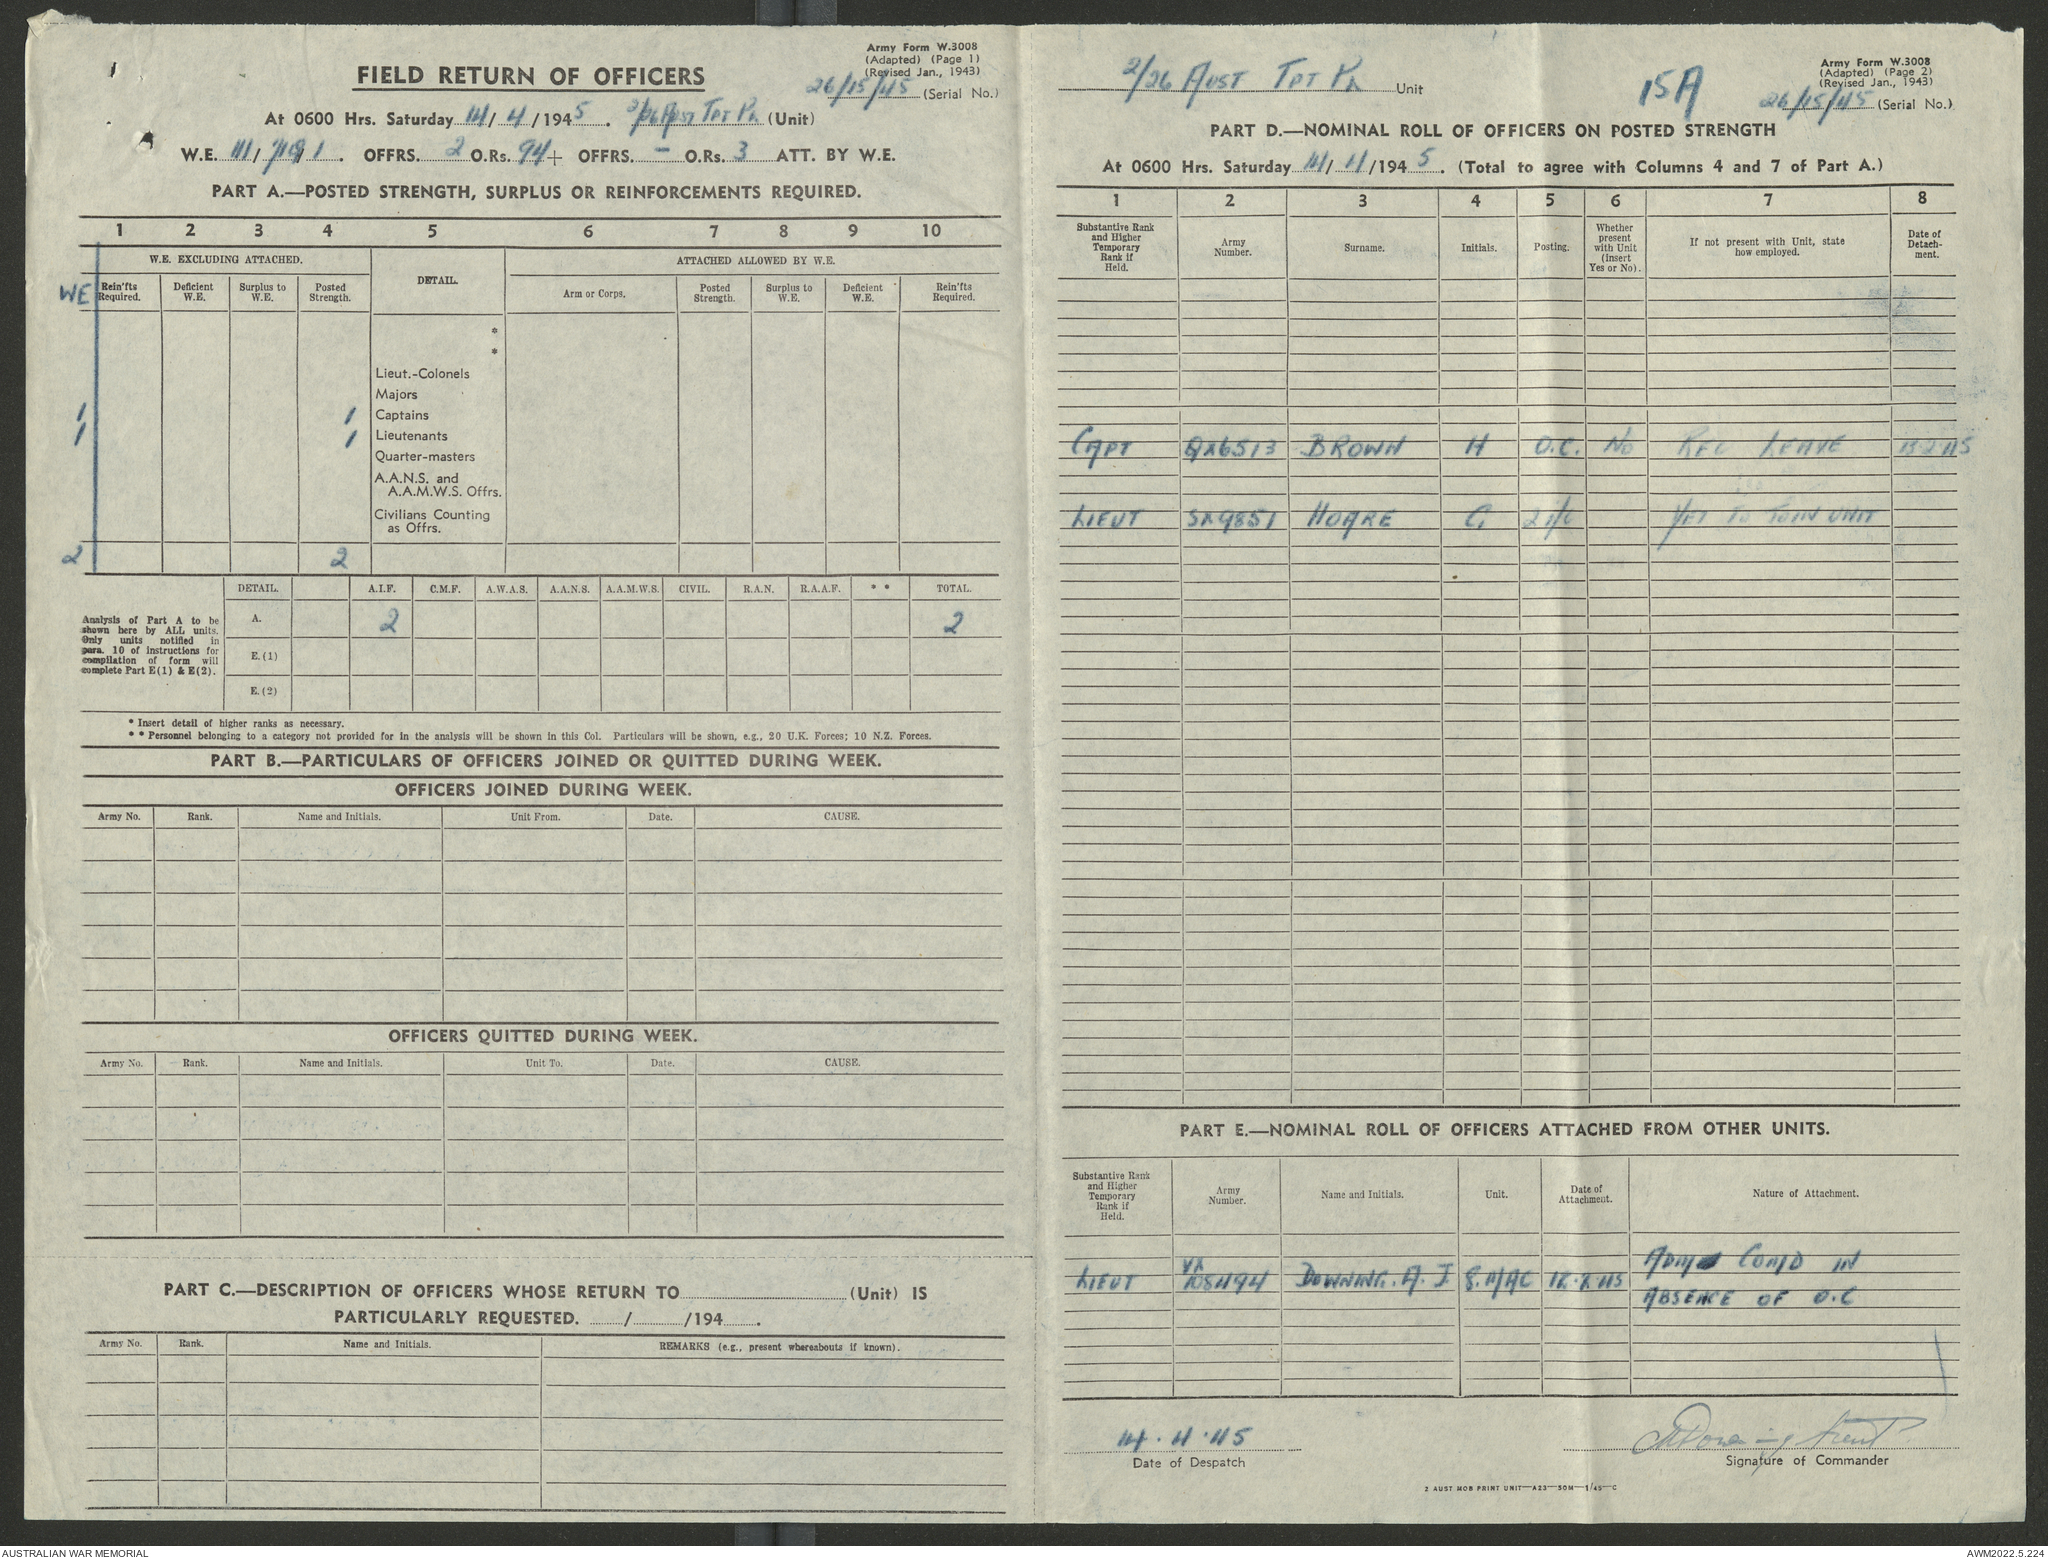 Army Form W.3008
(Adapted) (Page 1)
(Revised Jan., 1943)
FIELD RETURN OF OFFICERS
26/15/45 (Serial No.)
At 0600 Hrs. Saturday 14/4/1945. 2/26 Aust Tpt Pl (Unit)
W.E. OFFRS. 2 O.Rs. 94 + OFFRS. - O.Rs. 3 ATT. BY W.E.
PART A.—POSTED STRENGTH, SURPLUS OR REINFORCEMENTS REQUIRED.
1 2 3 4 5 6 7 8 9 10
W.E. EXCLUDING ATTACHED. DETAIL. ATTACHED ALLOWED BY W.E.
WE Rein'fts Required. Deficient W.E. Surplus to W.E. Posted Strength. Arm or Corps. Posted Strength. Surplus to W.E. Deficient W.E. Rein'fts Required.
*
*
Lieut.-Colonels
Majors
1 1 Captains
1 1 Lieutenants
Quarter-masters
A.A.N.S. and
A.A.M.W.S. Offrs.
Civilians Counting
as Offrs.
2 2
DETAIL. A.I.F. C.M.F. A.W.A.S. A.A.N.S. A.A.M.W.S. CIVIL. R.A.N. R.A.A.F. * * TOTAL.
Analysis of Part A to be
shown here by ALL units.
Only units notified in
para. 10 of instructions for
compilation of form will
complete Part E(1) & E(2).
A. 2 2
E.(1)
E.(2)
* Insert detail of higher ranks as necessary.
* * Personnel belonging to a category not provided for in the analysis will be shown in this Col. Particulars will be shown, e.g., 20 U.K. Forces; 10 N.Z. Forces.
PART B.—PARTICULARS OF OFFICERS JOINED OR QUITTED DURING WEEK.
OFFICERS JOINED DURING WEEK.
Army No. Rank. Name and Initials. Unit From. Date. CAUSE.
OFFICERS QUITTED DURING WEEK.
Army No. Rank. Name and Initials. Unit To. Date. CAUSE.
PART C.—DESCRIPTION OF OFFICERS WHOSE RETURN TO (Unit) IS
PARTICULARLY REQUESTED. / /194 .
Army No. Rank. Name and Initials. REMARKS (e.g., present whereabouts if known).
Army Form W.3008
(Adapted) (Page 2)
(Revised Jan., 1943)
2/26 Aust Tpt Pl Unit
15A
26/15/45 (Serial No.)
PART D.—NOMINAL ROLL OF OFFICERS ON POSTED STRENGTH
At 0600 Hrs. Saturday 14/4/1945. (Total to agree with Columns 4 and 7 of Part A.)
1 2 3 4 5 6 7 8
Substantive Rank and Higher Temporary Rank if Held. Army Number. Surname. Initials. Posting. Whether present with Unit (insert Yes or No). If not present with Unit, state how employed. Date of Detachment.
CAPT QX6513 BROWN H O.C. No REC LEAVE 13-2-45
LIEUT SX9851 HOARE C. 2 i/c YET TO JOIN UNIT
PART E.—NOMINAL ROLL OF OFFICERS ATTACHED FROM OTHER UNITS.
Substantive Rank and Higher Temporary Rank if Held. Army Number. Name and Initials. Unit. Date of Attachment. Nature of Attachment.
LIEUT VX 108494 DOWNING. A. J. COMD IN
ABSENCE OF O.C
14.4.45
Date of Despatch
Signature of Commander
2 AUST MOB PRINT UNIT—A23—50M—1/45—C
AUSTRALIAN WAR MEMORIAL
AWM2022.5.224